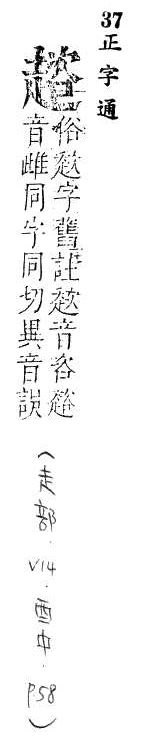 37 正字通
趦
俗趑字舊註趑音咨趦
音雌同字同切異音誤
(走部．V14．酉中．P.58)